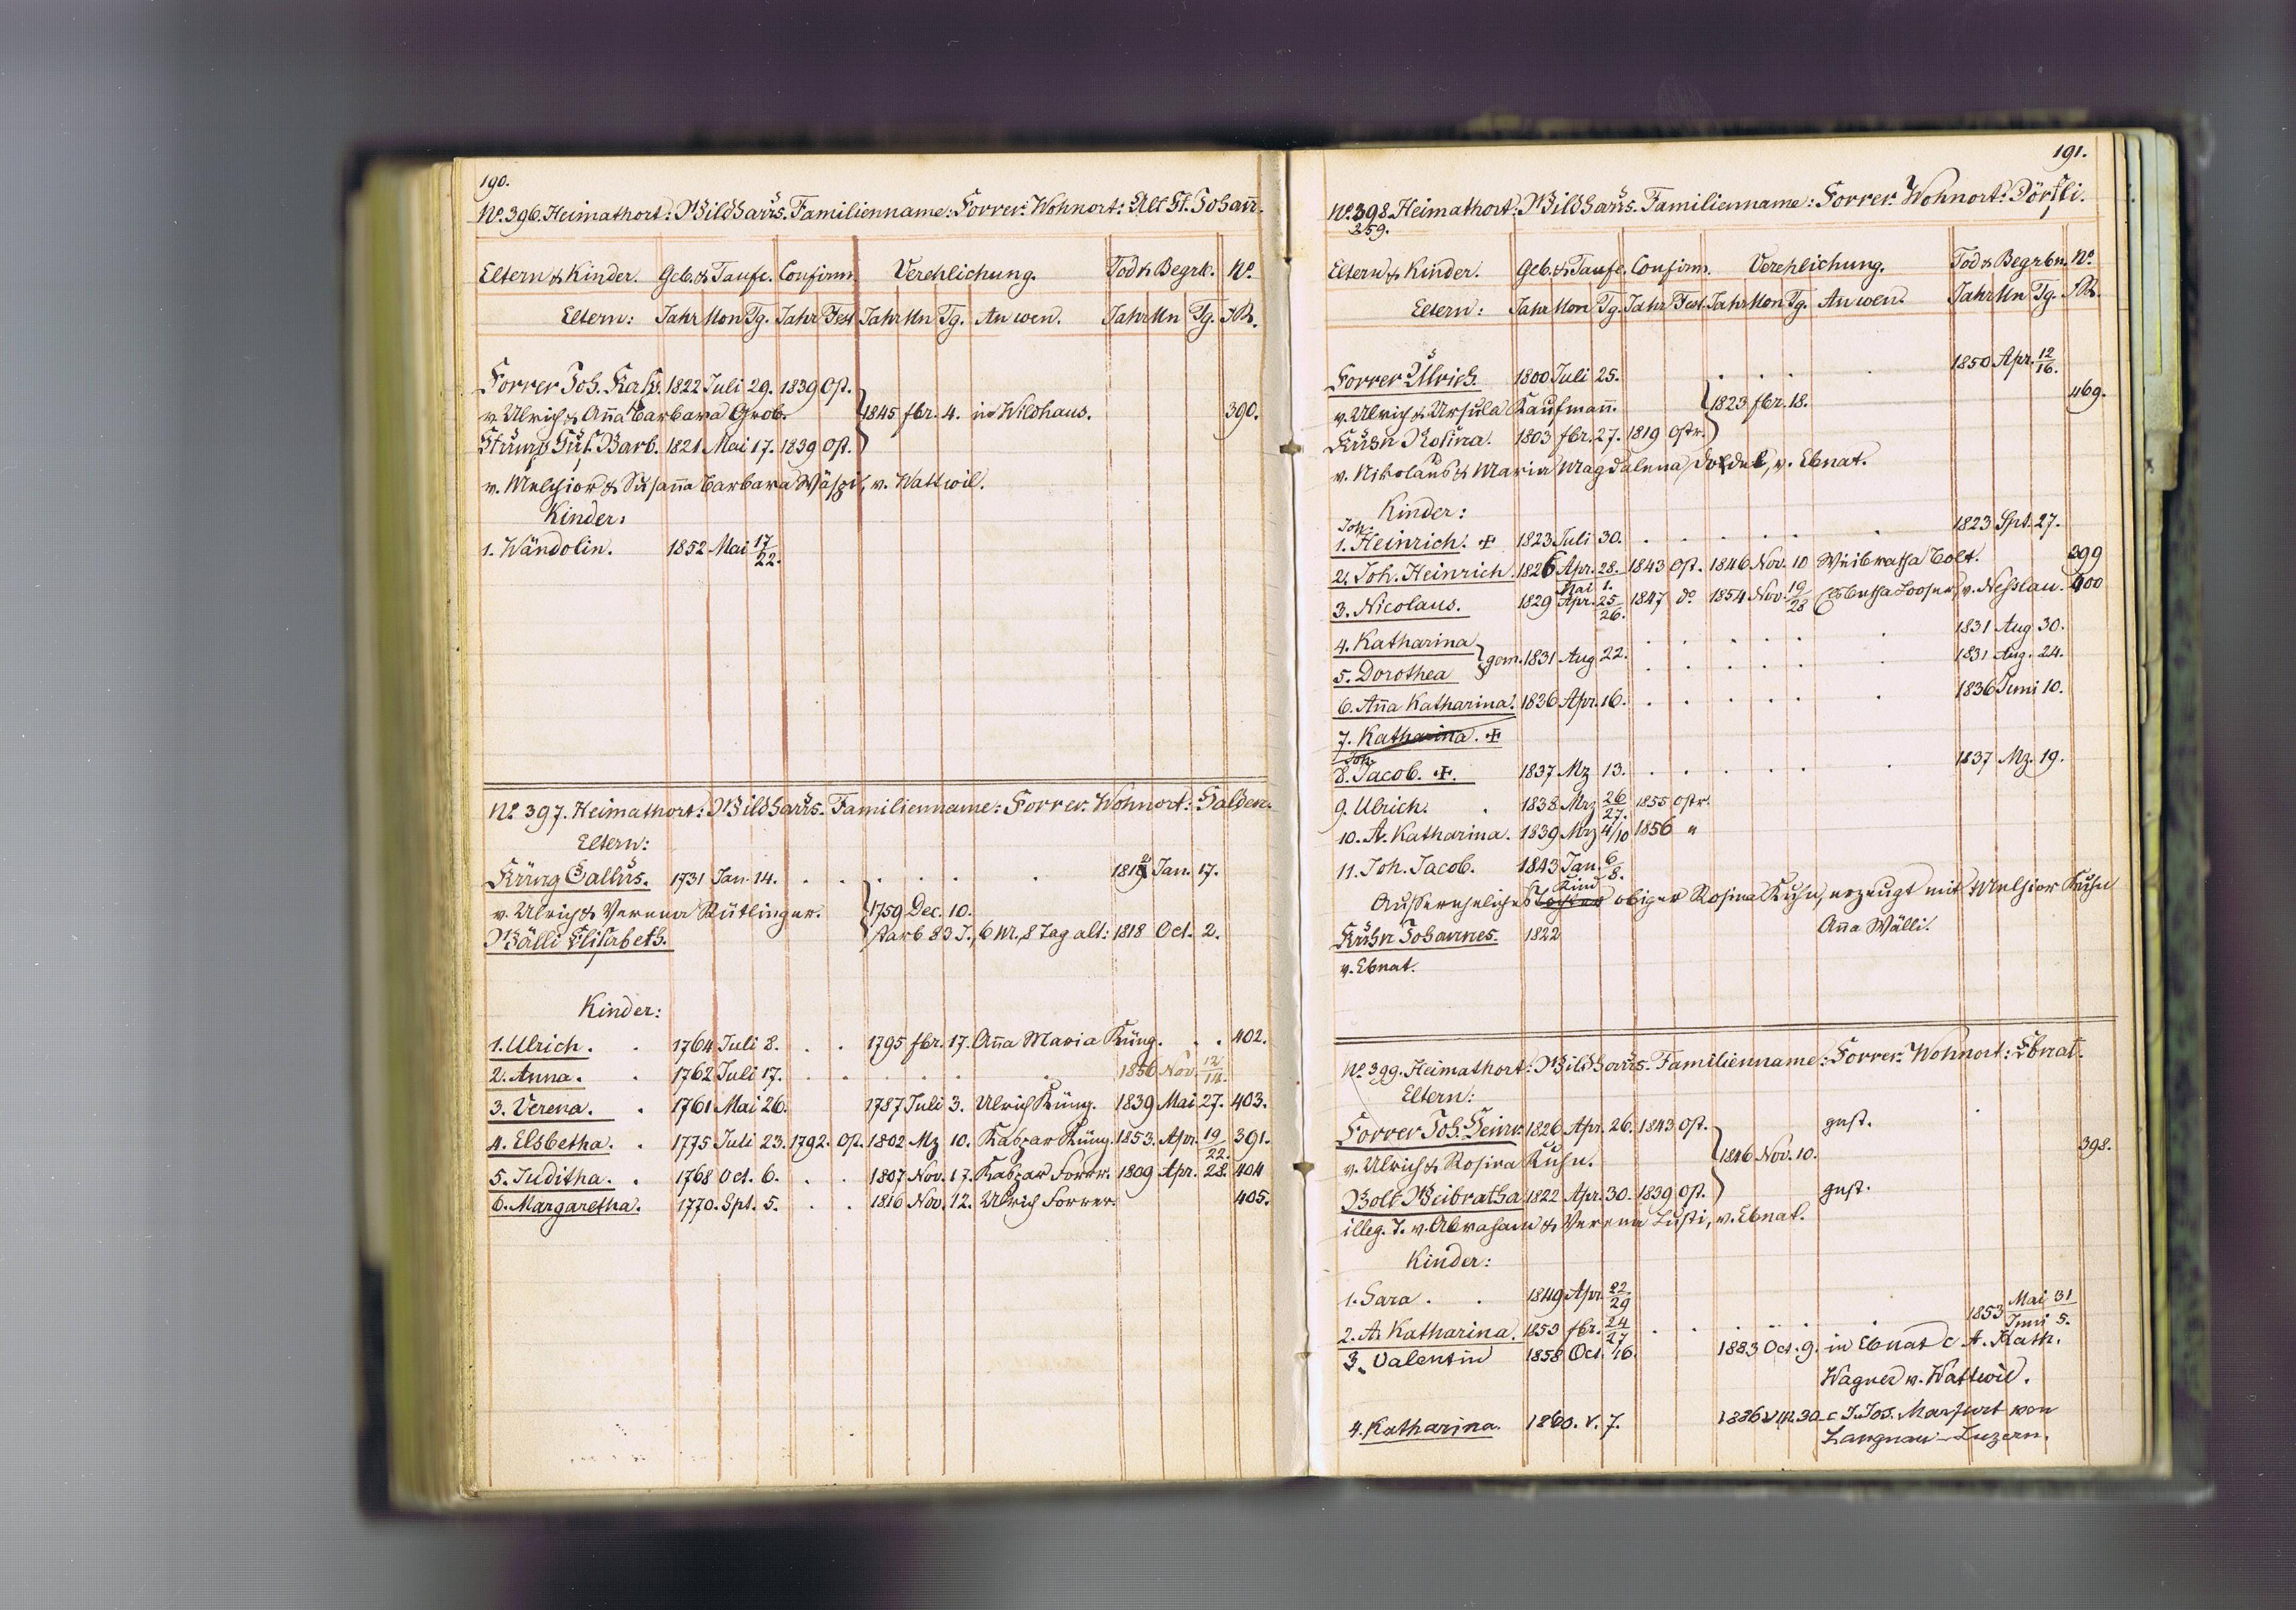 190.
No. 396. Heimathort: Wildhaus. Familienname: Forrer. Wohnort: Alt St. Johañ.
Eltern & Kinder. Geb. & Taufe. Confirm. Verehlichung. Tod & Begrb. No.
Eltern: Jahr Mon Tg. Jahr Fest Jahr Mn Tg. An wen. Jahr Mn Tg.
Forrer Joh. Kasp. 1822 Juli 29. 1839 Ost.
v. Ulrich & Aña Barbara Grob. 1845 fbr. 4. in Wildhaus. 390.
Barb. 1821 Mai 17. 1839 Ost.
v. Melchior & Susaña Barbara v. Wattwil.
Kinder:
1. Wändolin. 1852 Mai 17/22.
No. 397. Heimathort: Wildhaus. Familienname: Forrer. Wohnort: Halden.
Eltern:
Küng Gallus. 1731 Jan. 14. Jan. 17.
v. Ulrich & Verena Rütlinger. 1759 Dec. 10.
Wälli Elisabeth. starb 83 J., 6 M., 8 Tag alt: 1818 Oct. 2.
Kinder:
1. Ulrich. 1764 Juli 8. 1795 fbr. 17. Aña Maria Küng. 402.
2. Anna. 1762 Juli 17. 1836 Nov. 12/14.
3. Verena. 1761 Mai 26. 1787 Juli 3. Ulrich Küng. 1839 Mai 27. 403.
4. Elsbetha. 1775 Juli 23. 1792. Ost. 1802 Mz 10. Kaspar Küng. 1853. Apr. 19/22. 391.
5. Juditha. 1768 Oct. 6. 1807 Nov. 17. Kaspar Forrer. 1809 Apr. 28. 404
6. Margaretha. 1770. Spt. 5. 1816 Nov. 12. Ulrich Forrer. 405.
191.
No. 398. Heimathort: Wildhaus. Familienname: Forrer. Wohnort: Dörfli.
259.
Eltern & Kinder. Geb. & Taufe. Confirm. Verehlichung. Tod & Begrbn. No.
Eltern: Jahr Mon Tg. Jahr Fest Jahr Mon Tg. An wen. Jahr Mn Tg.
Forrer Ulrich. 1800 Juli 25. 1850 Apr. 12/16.
v. Ulrich & Ursula Kaufmañ. 1823 fbr. 18. 469.
Kuhn Rosina. 1803 fbr. 27. 1819 Ostr.
v. Nikolaus & Maria Magdalena v. Ebnat.
Kinder:
Joh.
1. Heinrich. ✠ 1823 Juli 30. 1823 Spt. 27.
2. Joh. Heinrich. 1826 Apr. 28. 1843 Ost. 1846 Nov. 10 Weibratha Bolt. 399
Mai 1.
3. Nicolaus. 1829 Apr. 25/26. 1847 do 1854 Nov. 19/28 Elsbetha Looser, v. Nesslau. 400
4. Katharina 1831 Aug 30.
gem. 1831 Aug 22.
5. Dorothea 1831 Aug. 24.
6. Aña Katharina. 1836 Apr. 16. 1836 Juni 10.
7. Katharina. ✠
Joh.
8. Jacob. ✠. 1837 Mz 13. 1837 Mz. 19.
9. Ulrich. 1838 Mrz 26/27. 1855 Ostr.
10. A. Katharina. 1839 Mrz 4/10 1856 "
11. Joh. Jacob. 1843 Jan. 6/8.
Kind
Ausserehliches Tochter obiger Rosina Kuhn, erzeugt mit Melchior Kuhn
Aña Wälli.
Kuhn Johannes. 1822
v. Ebnat.
No. 399. Heimathort: Wildhaus. Familienname: Forrer. Wohnort: Ebnat.
Eltern:
Forrer Joh. Heinr. 1826 Apr. 26. 1843 Ost. gest.
v. Ulrich & Rosina Kuhn. 1846 Nov. 10. 398.
Bolt Weibratha 1822 Apr. 30. 1839 Ost. gest.
illeg. T. v. Abraham & Verena Lusti, v. Ebnat.
Kinder:
1. Sara. 1849 Apr. 22/29
2. A. Katharina. 1853 fbr. 24/27 1853 Mai 31/Juni 5.
3. Valentin 1858 Oct. 16. 1883 Oct. 9. in Ebnat c A. Kath.
Wagner v. Wattwil.
4. Katharina. 1860. V. 7. 1886 30. c J. Jos. Marfurt von
Langnau - Luzern.